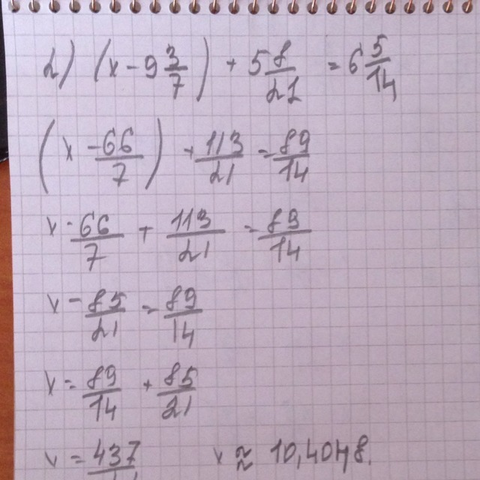 2) (x - 9 3/7) + 5 8/21 = 6 5/14
(x - 66/7) + 113/21 = 89/14
x - 66/7 + 113/21 = 89/14
x - 85/21 = 89/14
x = 89/14 + 85/21
x = 437/ x ≈ 10,4048.